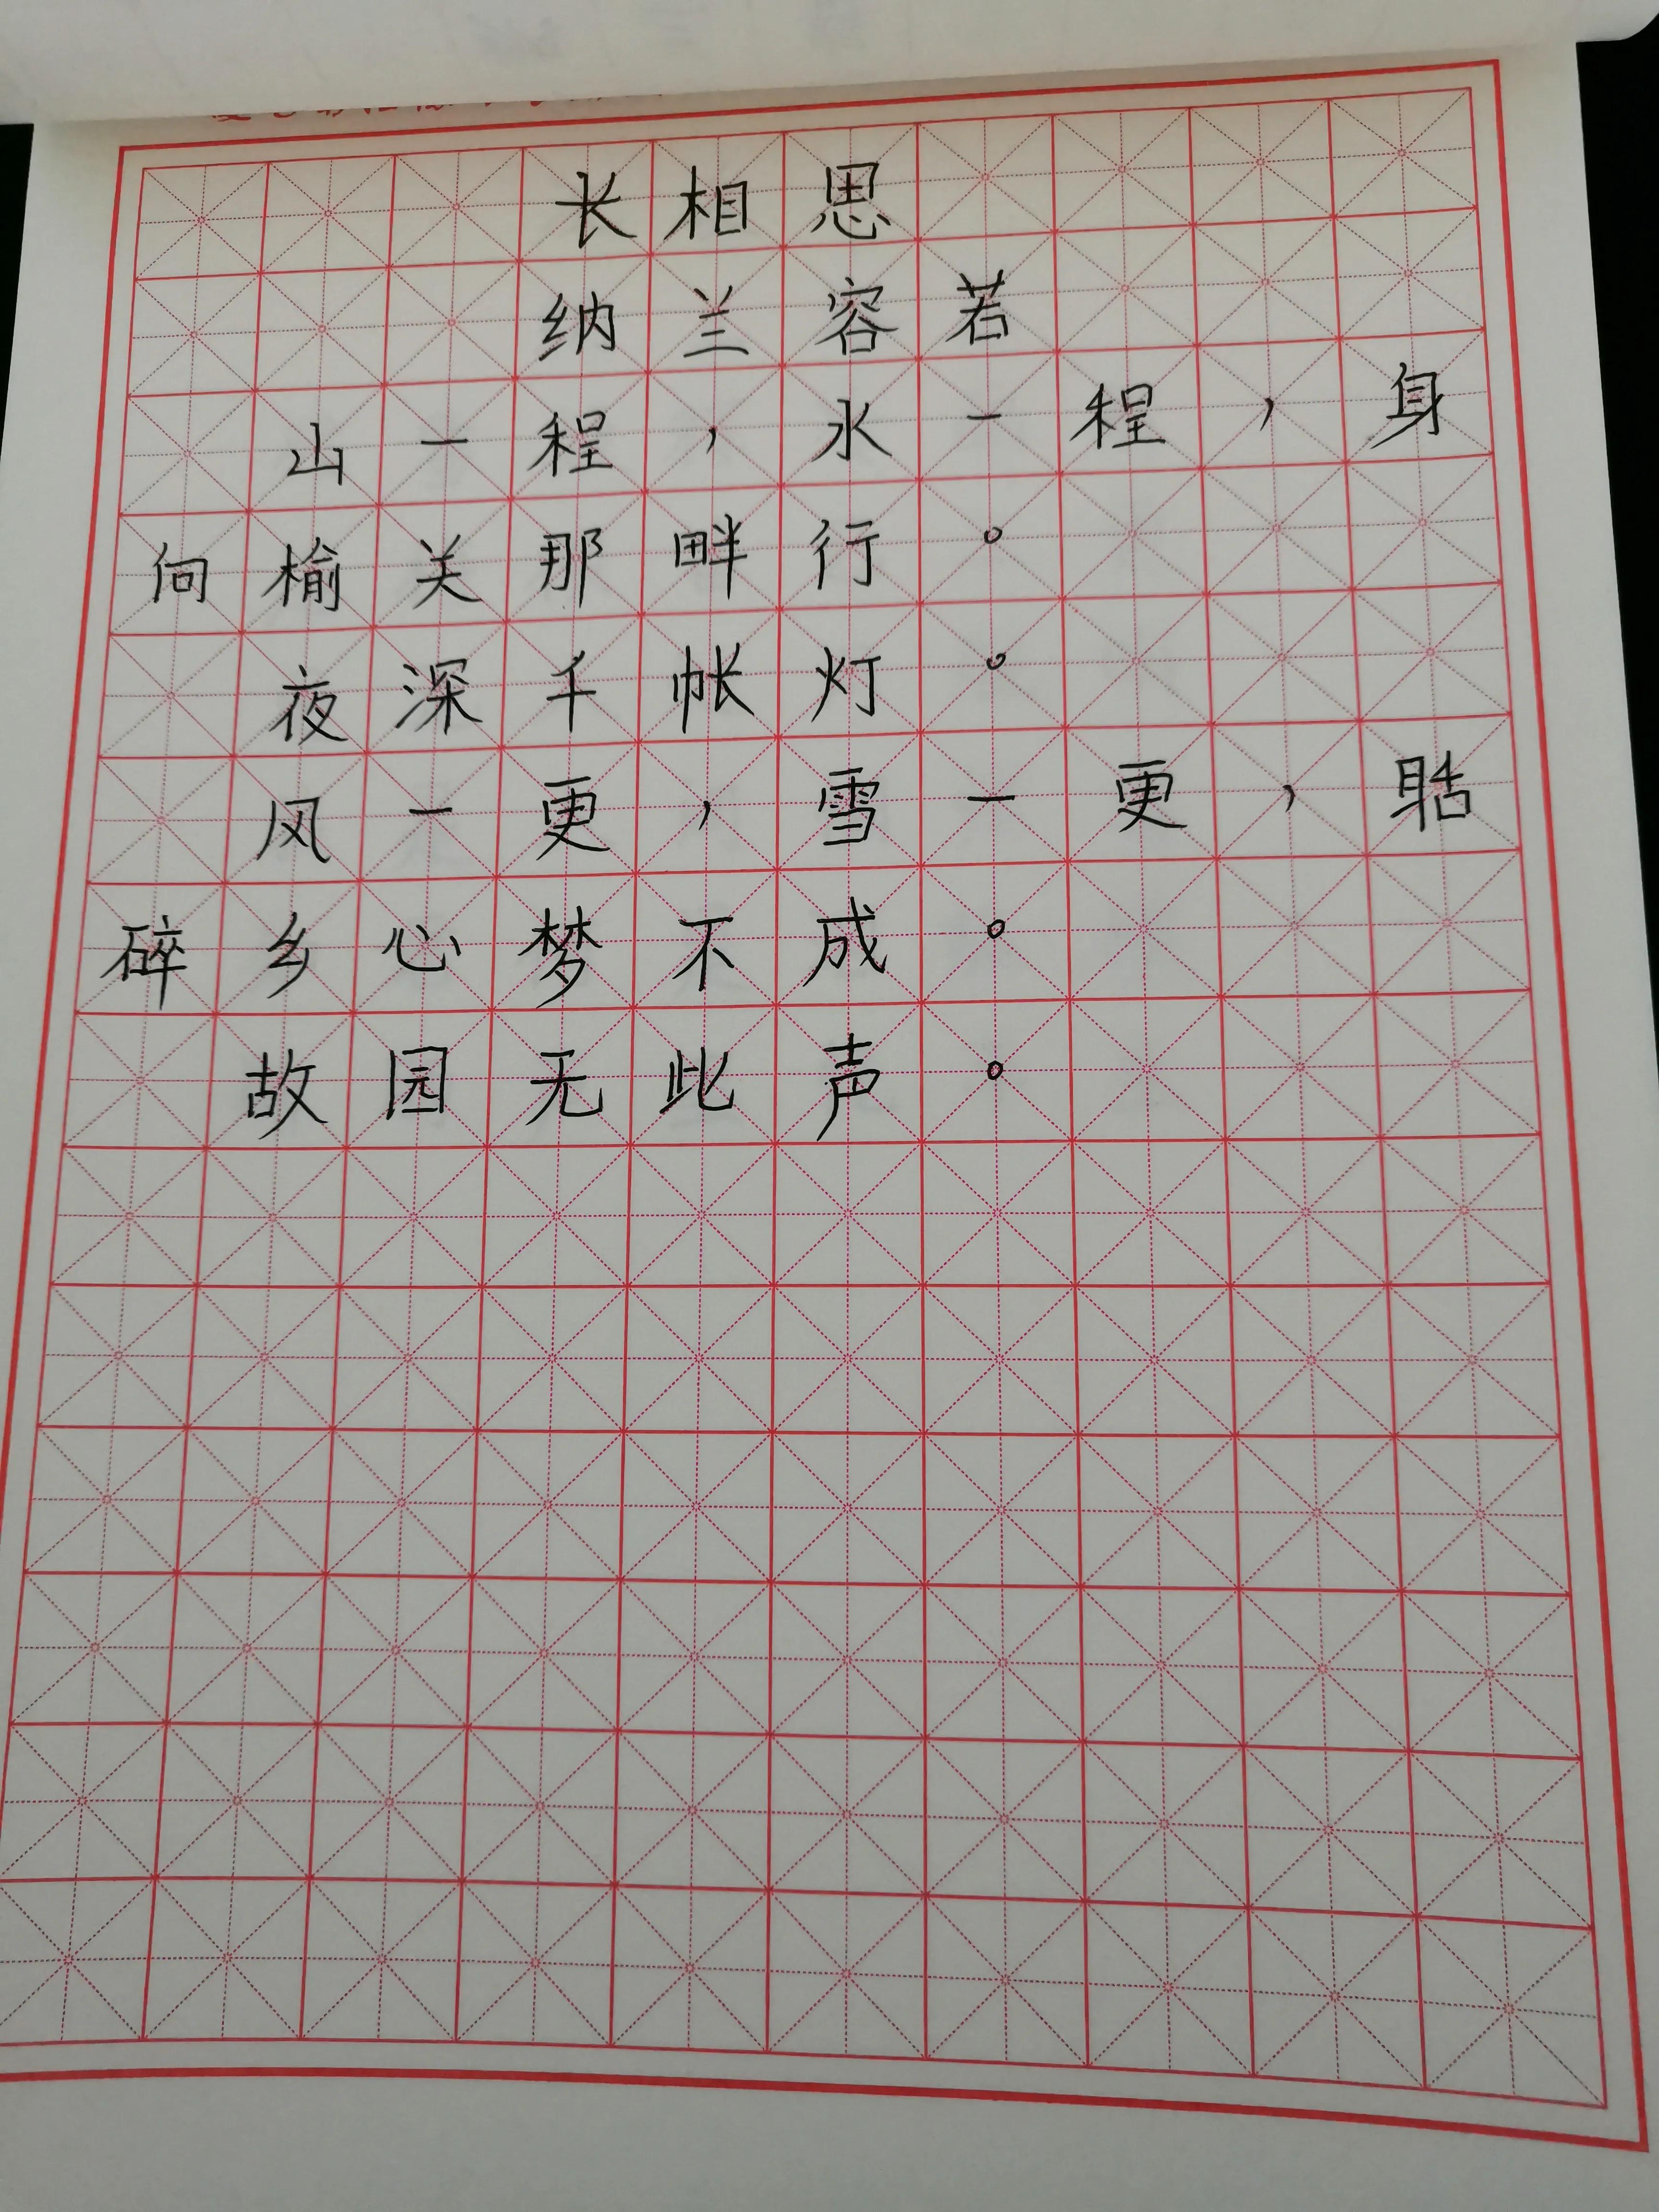 长相思
纳兰容若
山一程，水一程，身
向榆关那畔行。
夜深千帐灯。
风一更，雪一更，聒
碎乡心梦不成。
故园无此声。